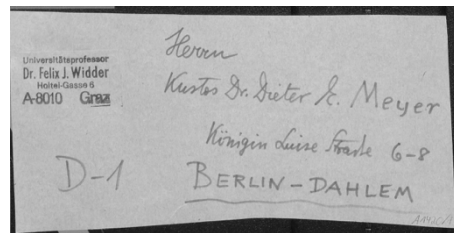 Universitätsprofessor
Dr. Felix J. Widder
Holtei-Gasse 6
A-8010 Graz
Herrn
Kustos Dr. Dieter E. Meyer
Königin Luise Straße 6-8
D-1 BERLIN-DAHLEM